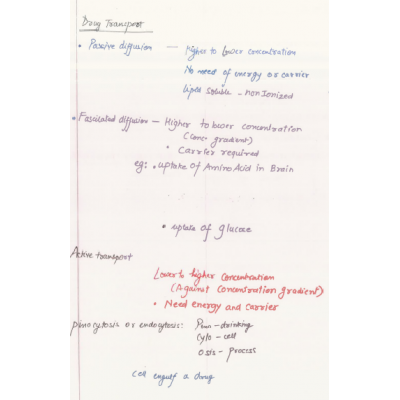 Drug Transport
• Passive diffusion — Higher to lower concentration
No need of energy or carrier
Lipid soluble - non Ionized
• Fascilated diffusion — Higher to lower concentration
(conc. gradient)
• Carrier required
eg: • uptake of Amino Acid in Brain
• uptake of glucose
Active transport
Lower to higher concentration
(Against Concentration gradient)
• Need energy and carrier
pinocytosis or endocytosis: Pino - drinking
Cyto - cell
osis - process
Cell engulf a drug